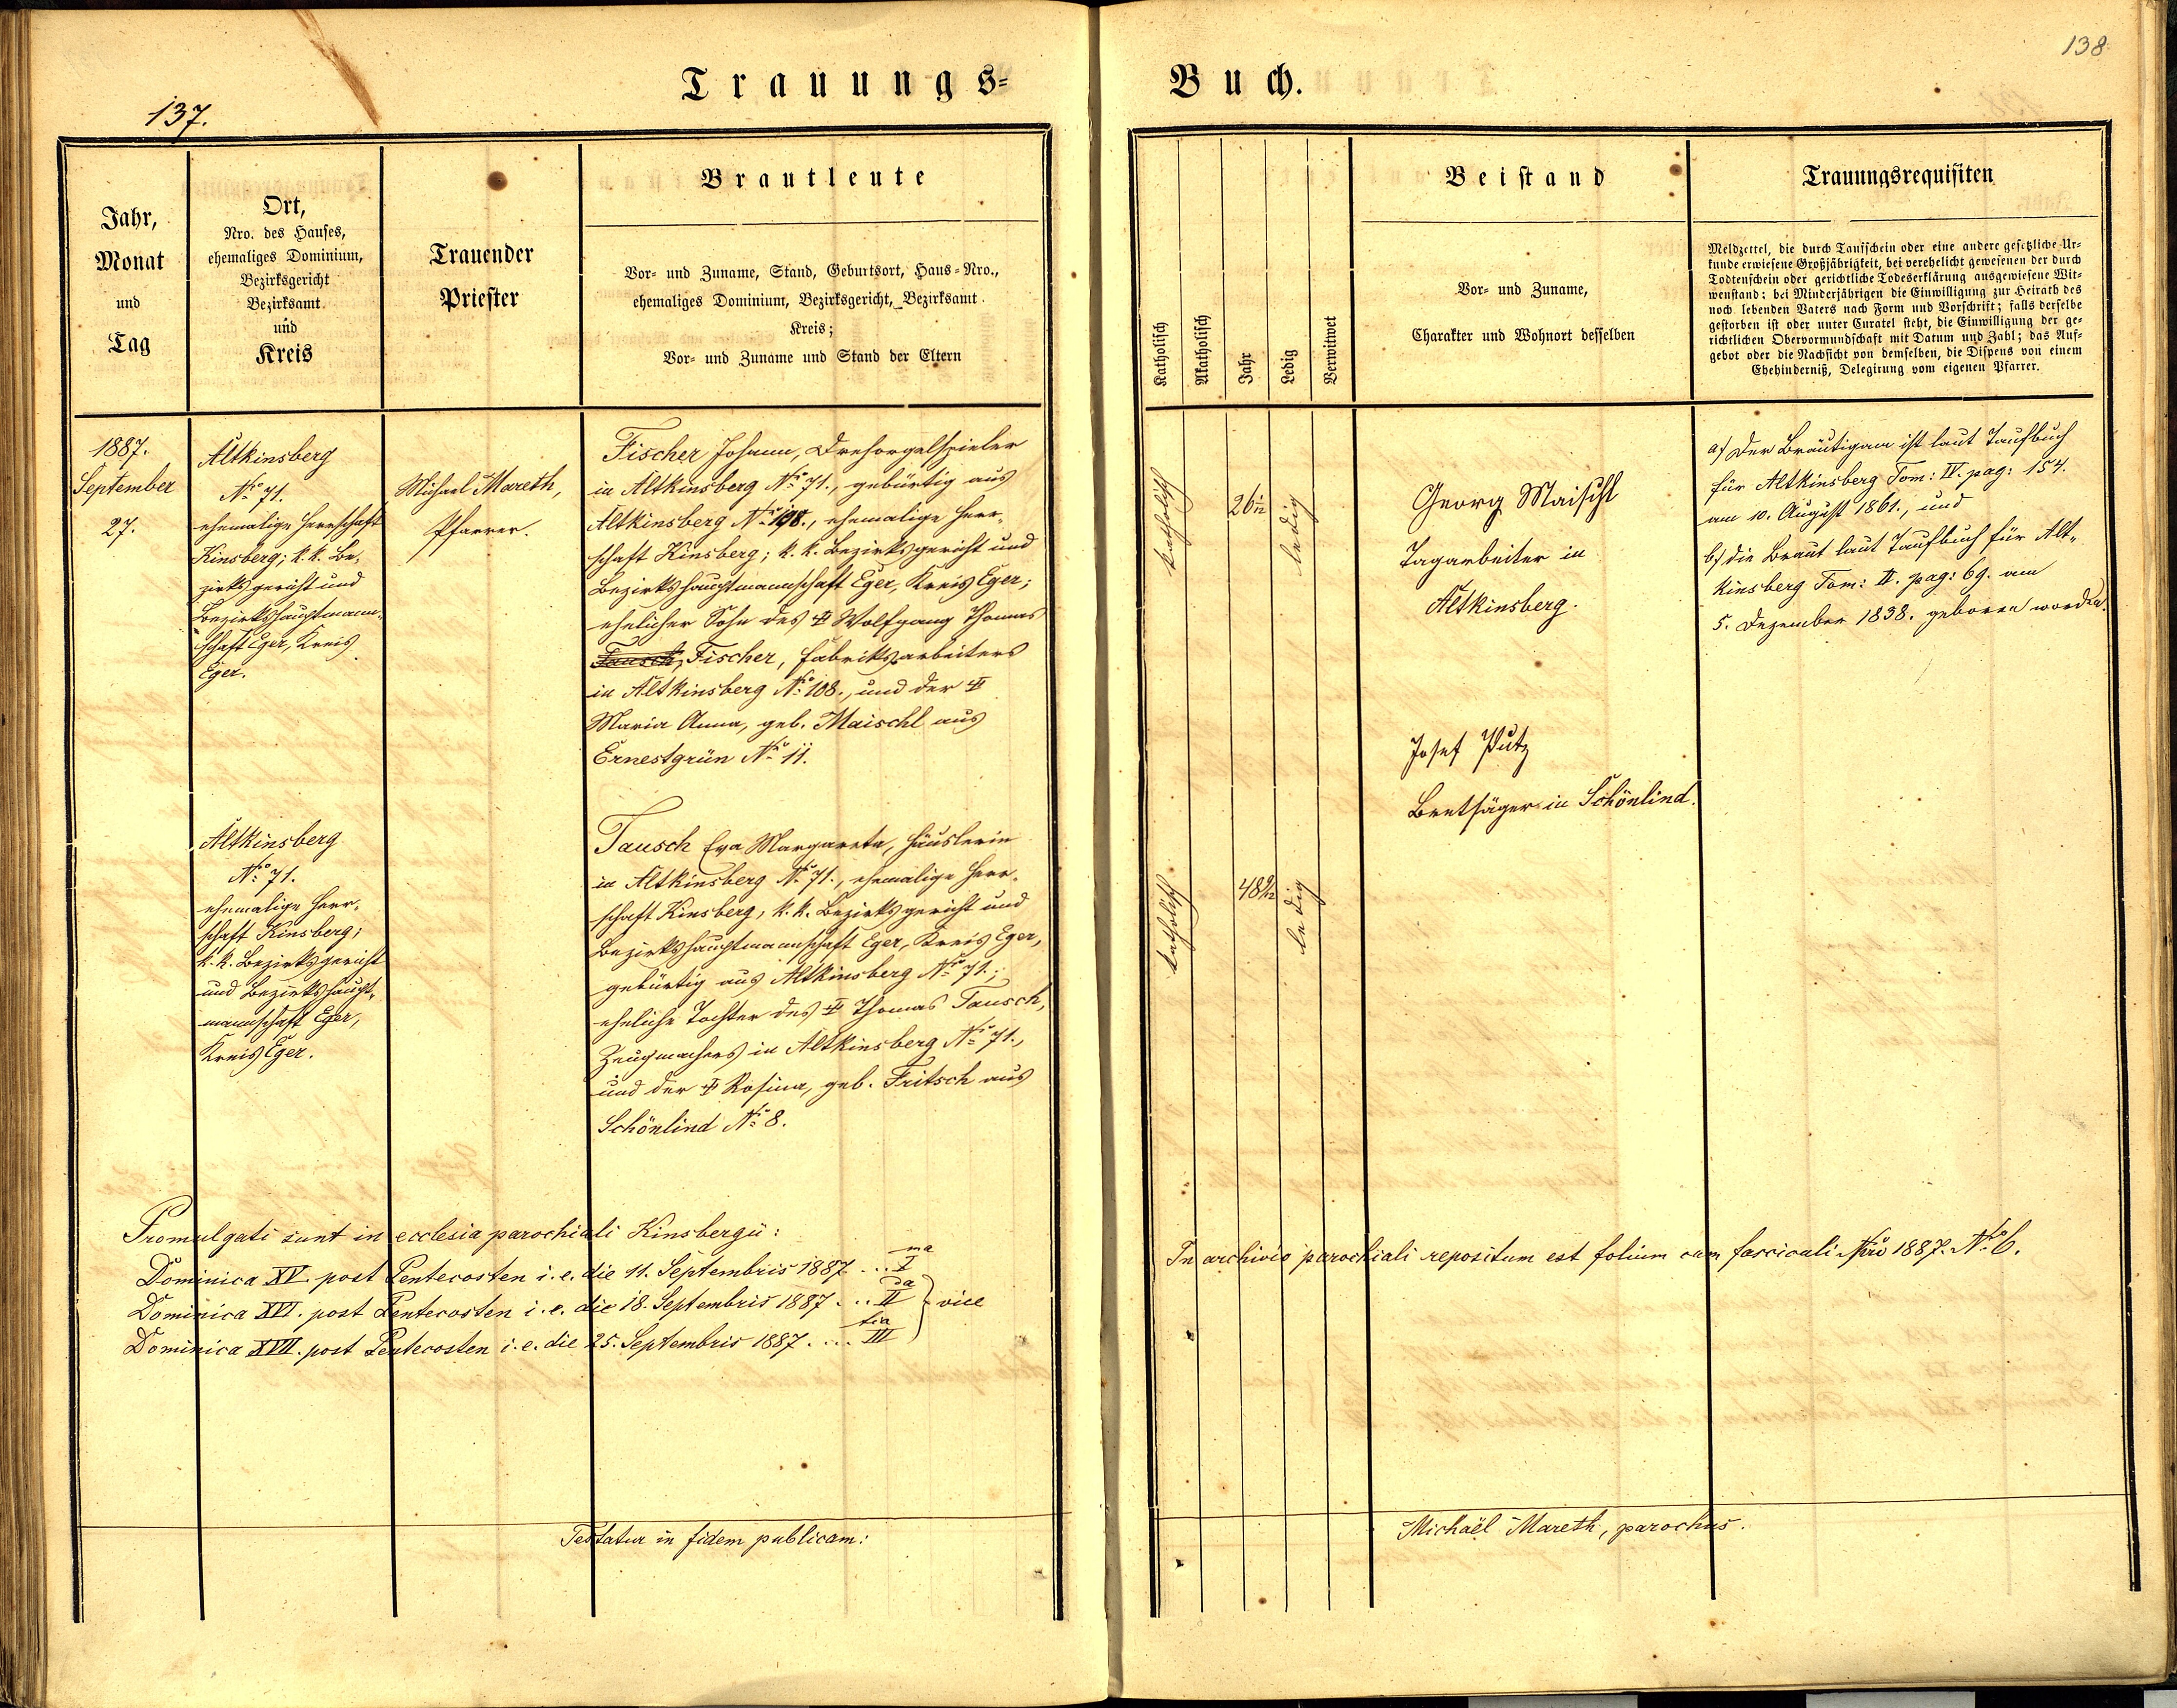 137.
138
Trauungs=
Buch.
Jahr,
Monat
und
Tag
Ort,
Nro. des Hauses,
ehemaliges Dominium,
Bezirksgericht
Bezirksamt
und
Kreis
Trauender
Priester
Brautleute
Vor- und Zuname, Stand, Geburtsort, Haus-Nro.,
ehemaliges Dominium, Bezirksgericht, Bezirksamt
Kreis;
Vor- und Zuname und Stand der Eltern
Katholisch
Akatholisch
Jahr
Ledig
Verwitwet
Beistand
Vor- und Zuname,
Charakter und Wohnort desselben
Trauungsrequisiten
Meldzettel, die durch Taufschein oder eine andere gesetzliche Ur=
kunde erwiesene Großjährigkeit, bei verehelicht gewesenen der durch
Todtenschein oder gerichtliche Todeserklärung ausgewiesene Wit=
wenstand; bei Minderjährigen die Einwilligung zur Heirath des
noch lebenden Vaters nach Form und Vorschrift; falls derselbe
gestorben ist oder unter Curatel steht, die Einwilligung der ge=
richtlichen Obervormundschaft mit Datum und Zahl; das Auf=
gebot oder die Nachsicht von demselben, die Dispens von einem
Ehehinderniß, Delegirung vom eigenen Pfarrer.
1887.
September
27.
Altkinsberg
No 71.
ehemalige Herrschaft
Kinsberg; k. k. Be,
zirksgericht und
Bezirkshauptmann,
schaft Eger, Kreis
Eger.
Michael Mareth,
Pfarrer.
Fischer Johann, Drehorgelspieler
in Altkinsberg No 71., gebürtig aus
Altkinsberg No 108., ehemalige Herr,
schaft Kinsberg; k. k. Bezirksgericht und
Bezirkshauptmannschaft Eger, Kreis Eger;
ehelicher Sohn des ‡ Wolfgang Thomas
Tausch, Fischer, Fabriksarbeiters
in Altkinsberg No 108., und der ‡
Maria Anna, geb. Maischl aus
Ernestgrün No 11.
katholisch
26 1/12
ledig
Georg Maischl
Tagarbeiter in
Altkinsberg.
Josef Putz
Brettsäger in Schönlind.
a) Der Bräutigam ist laut Taufbuch
für Altkinsberg Tom: IV. pag: 154.
am 10. August 1861., und
b) die Braut laut Taufbuch für Alt„
kinsberg Tom: II. pag: 69. am
5. Dezember 1838. geboren worden.
Altkinsberg
No 71.
ehemalige Herr,
schaft Kinsberg;
k. k. Bezirksgericht
und Bezirkshaupt,
mannschaft Eger,
Kreis Eger.
Tausch Eva Margareta, Häuslerin
in Altkinsberg No 71., ehemalige Herr,
schaft Kinsberg, k. k. Bezirksgericht und
Bezirkshauptmannschaft Eger, Kreis Eger,
gebürtig aus Altkinsberg No 71.;
eheliche Tochter des ‡ Thomas Tausch,
Zeugmachers in Altkinsberg No 71.,
und der ‡ Rosina, geb. Fritsch aus
Schönlind No 8.
katholisch
48 9/12
ledig
Promulgati sunt in ecclesia parochiali Kinsbergii:
Dominica XV. post Pentecosten i. e. die 11. Septembris 1887 ... I ma
Dominica XVI. post Pentecosten i. e. die 18. Septembris 1887 ... II da } vice
Dominica XVII. post Pentecosten i. e. die 25. Septembris 1887 .... III tia
In archivio parochiali repositum est folium cum fascicali Nro 1887. No 6.
Testatur in fidem publicam:
Michaël Mareth, parochus.